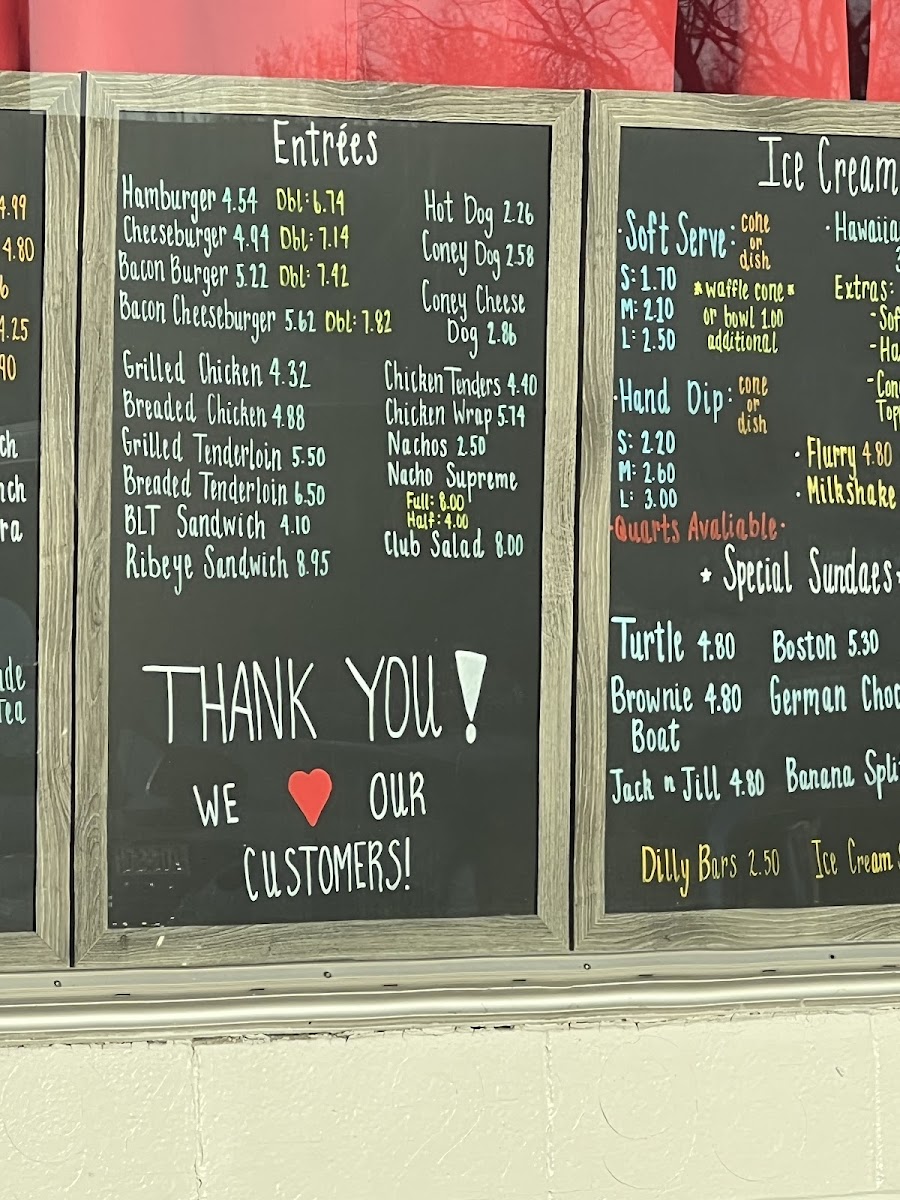 4.99
4.80
4.25
Entrées
Hamburger 4.54 Dbl: 6.74
Cheeseburger 4.94 Dbl: 7.14
Bacon Burger 5.22 Dbl: 7.42
Bacon Cheeseburger 5.62 Dbl: 7.82
Grilled Chicken 4.32
Breaded Chicken 4.88
Grilled Tenderloin 5.50
Breaded Tenderloin 6.50
BLT Sandwich 4.10
Ribeye Sandwich 8.95
Hot Dog 2.26
Coney Dog 2.58
Coney Cheese
Dog 2.86
Chicken Tenders 4.40
Chicken Wrap 5.74
Nachos 2.50
Nacho Supreme
Full: 8.00
Half: 4.00
Club Salad 8.00
THANK YOU!
WE OUR
CUSTOMERS!
Tea
Ice Cream
• Soft Serve: cone
or
dish
S: 1.70
M: 2.10
L: 2.50
*waffle cone*
or bowl 1.00
additional
• Hand Dip: cone
or
dish
S: 2.20
M: 2.60
L: 3.00
• Quarts Avaliable •
Extras:
• Flurry 4.80
• Milkshake
* Special Sundaes *
Turtle 4.80
Brownie 4.80
Boat
Jack n Jill 4.80
Boston 5.30
German
Banana
Dilly Bars 2.50 Ice Cream